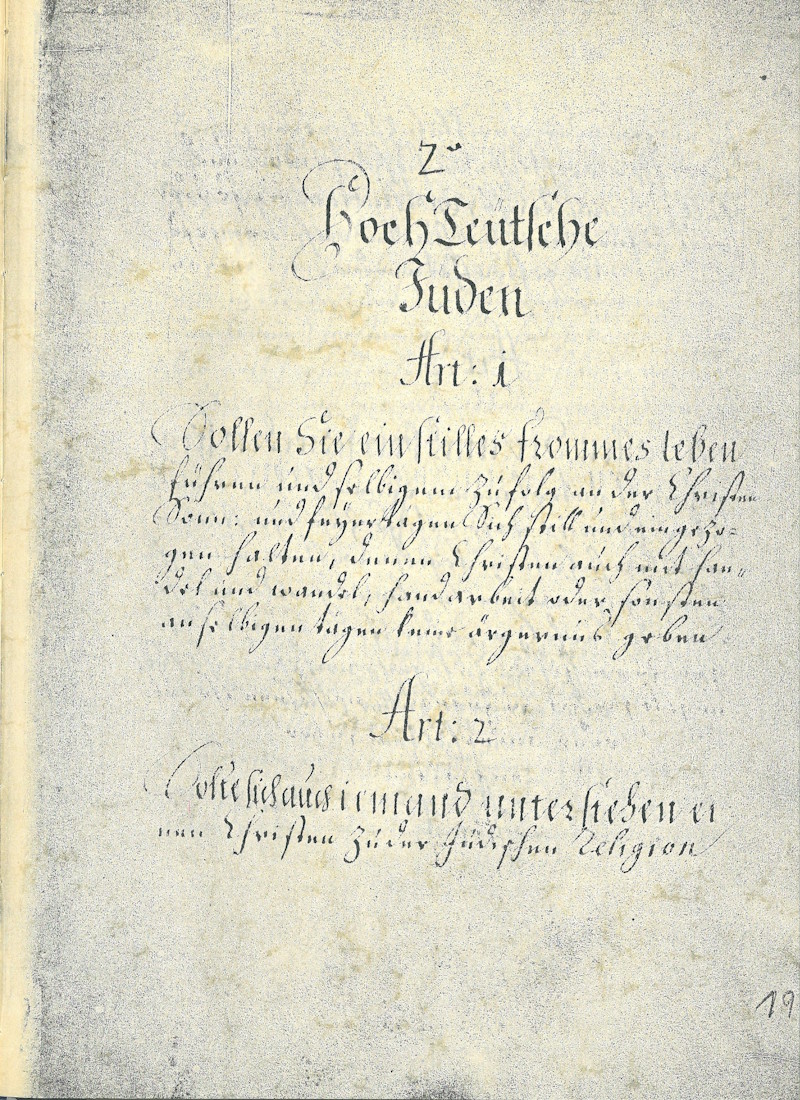 2º
HochTeütsche
Juden
Art: 1
Sollen Sie ein stilles frommes leben
führen und selbigem zufolg an der Christen
Sonn: und feyertägen Sich still und eingezo=
gen halten, denen Christen auch mit han=
del und wandel, handarbeit oder sonsten
an selbigen tägen keine ärgernus geben
Art: 2
Solte sich auch iemand unterstehen ei
nen Christen zu der Jüdischen Religion
19